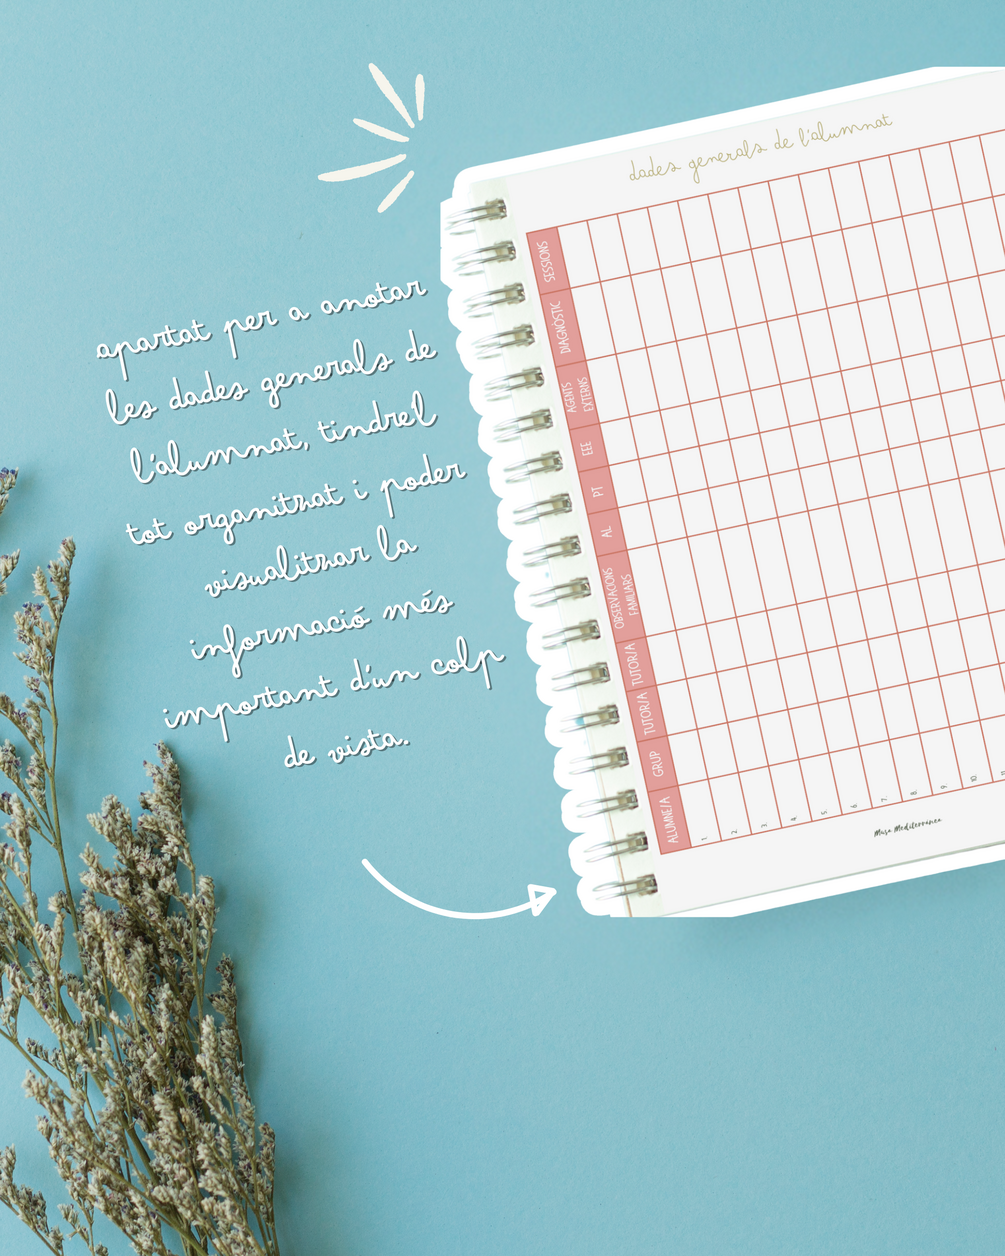 apartat per a anotar
les dades generals de
l'alumnat, tindre'l
tot organitzat i poder
visualitzar la
informació més
important d'un colp
de vista.
dades generals de l'alumnat
SESSIONS
DIAGNÒSTIC
AGENTS
EXTERNS
EEE
PT
AL
OBSERVACIONS
FAMILIARS
TUTOR/A
TUTOR/A
GRUP
ALUMNE/A
1.
2.
3.
4.
5.
6.
7.
8.
9.
10.
11.
Musa Mediterránea